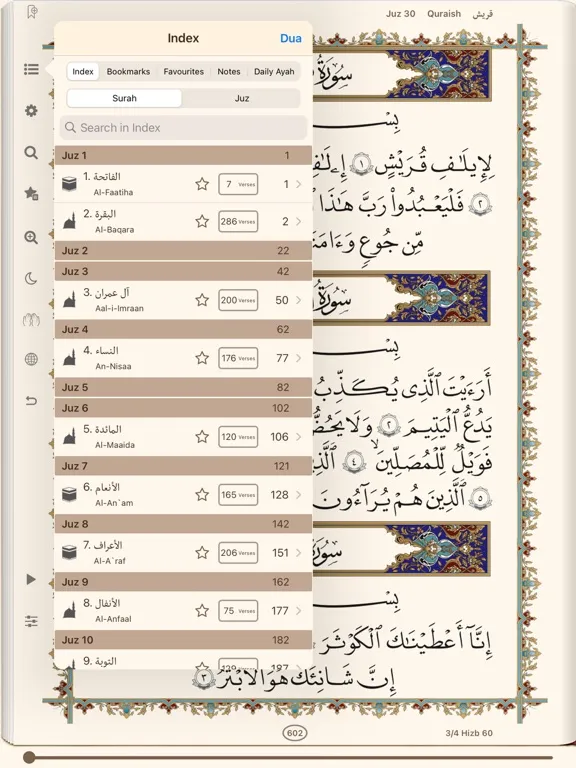 Juz 30 Quraish قريش
Index
Dua
Index Bookmarks Favourites Notes Daily Ayah
Surah Juz
Search in Index
Juz 1 1
1. الفاتحة
Al-Faatiha
7 Verses 1
2. البقرة
Al-Baqara
286 Verses 2
Juz 2 22
Juz 3 42
3. آل عمران
Aal-i-Imraan
200 Verses 50
Juz 4 62
4. النساء
An-Nisaa
176 Verses 77
Juz 5 82
Juz 6 102
5. المائدة
Al-Maaida
120 Verses 106
Juz 7 121
6. الأنعام
Al-An`am
165 Verses 128
Juz 8 142
7. الأعراف
Al-A`raf
206 Verses 151
Juz 9 162
8. الأنفال
Al-Anfaal
75 Verses 177
Juz 10 182
9. التوبة
سُورَة
لِإِيلَٰفِ قُرَيْشٍ ١
٢ فَلْيَعْبُدُوا۟ رَبَّ هَٰذَا
مِّن جُوعٍ
سُورَة
أَرَءَيْتَ ٱلَّذِى يُكَذِّبُ
يَدُعُّ ٱلْيَتِيمَ ٢ وَلَا يَحُضُّ
فَوَيْلٌ لِّلْمُصَلِّينَ ٤
٥ ٱلَّذِينَ هُمْ يُرَآءُونَ
سُورَة
إِنَّآ أَعْطَيْنَٰكَ ٱلْكَوْثَرَ
إِنَّ شَانِئَكَ هُوَ ٱلْأَبْتَرُ ٣
602
3/4 Hizb 60